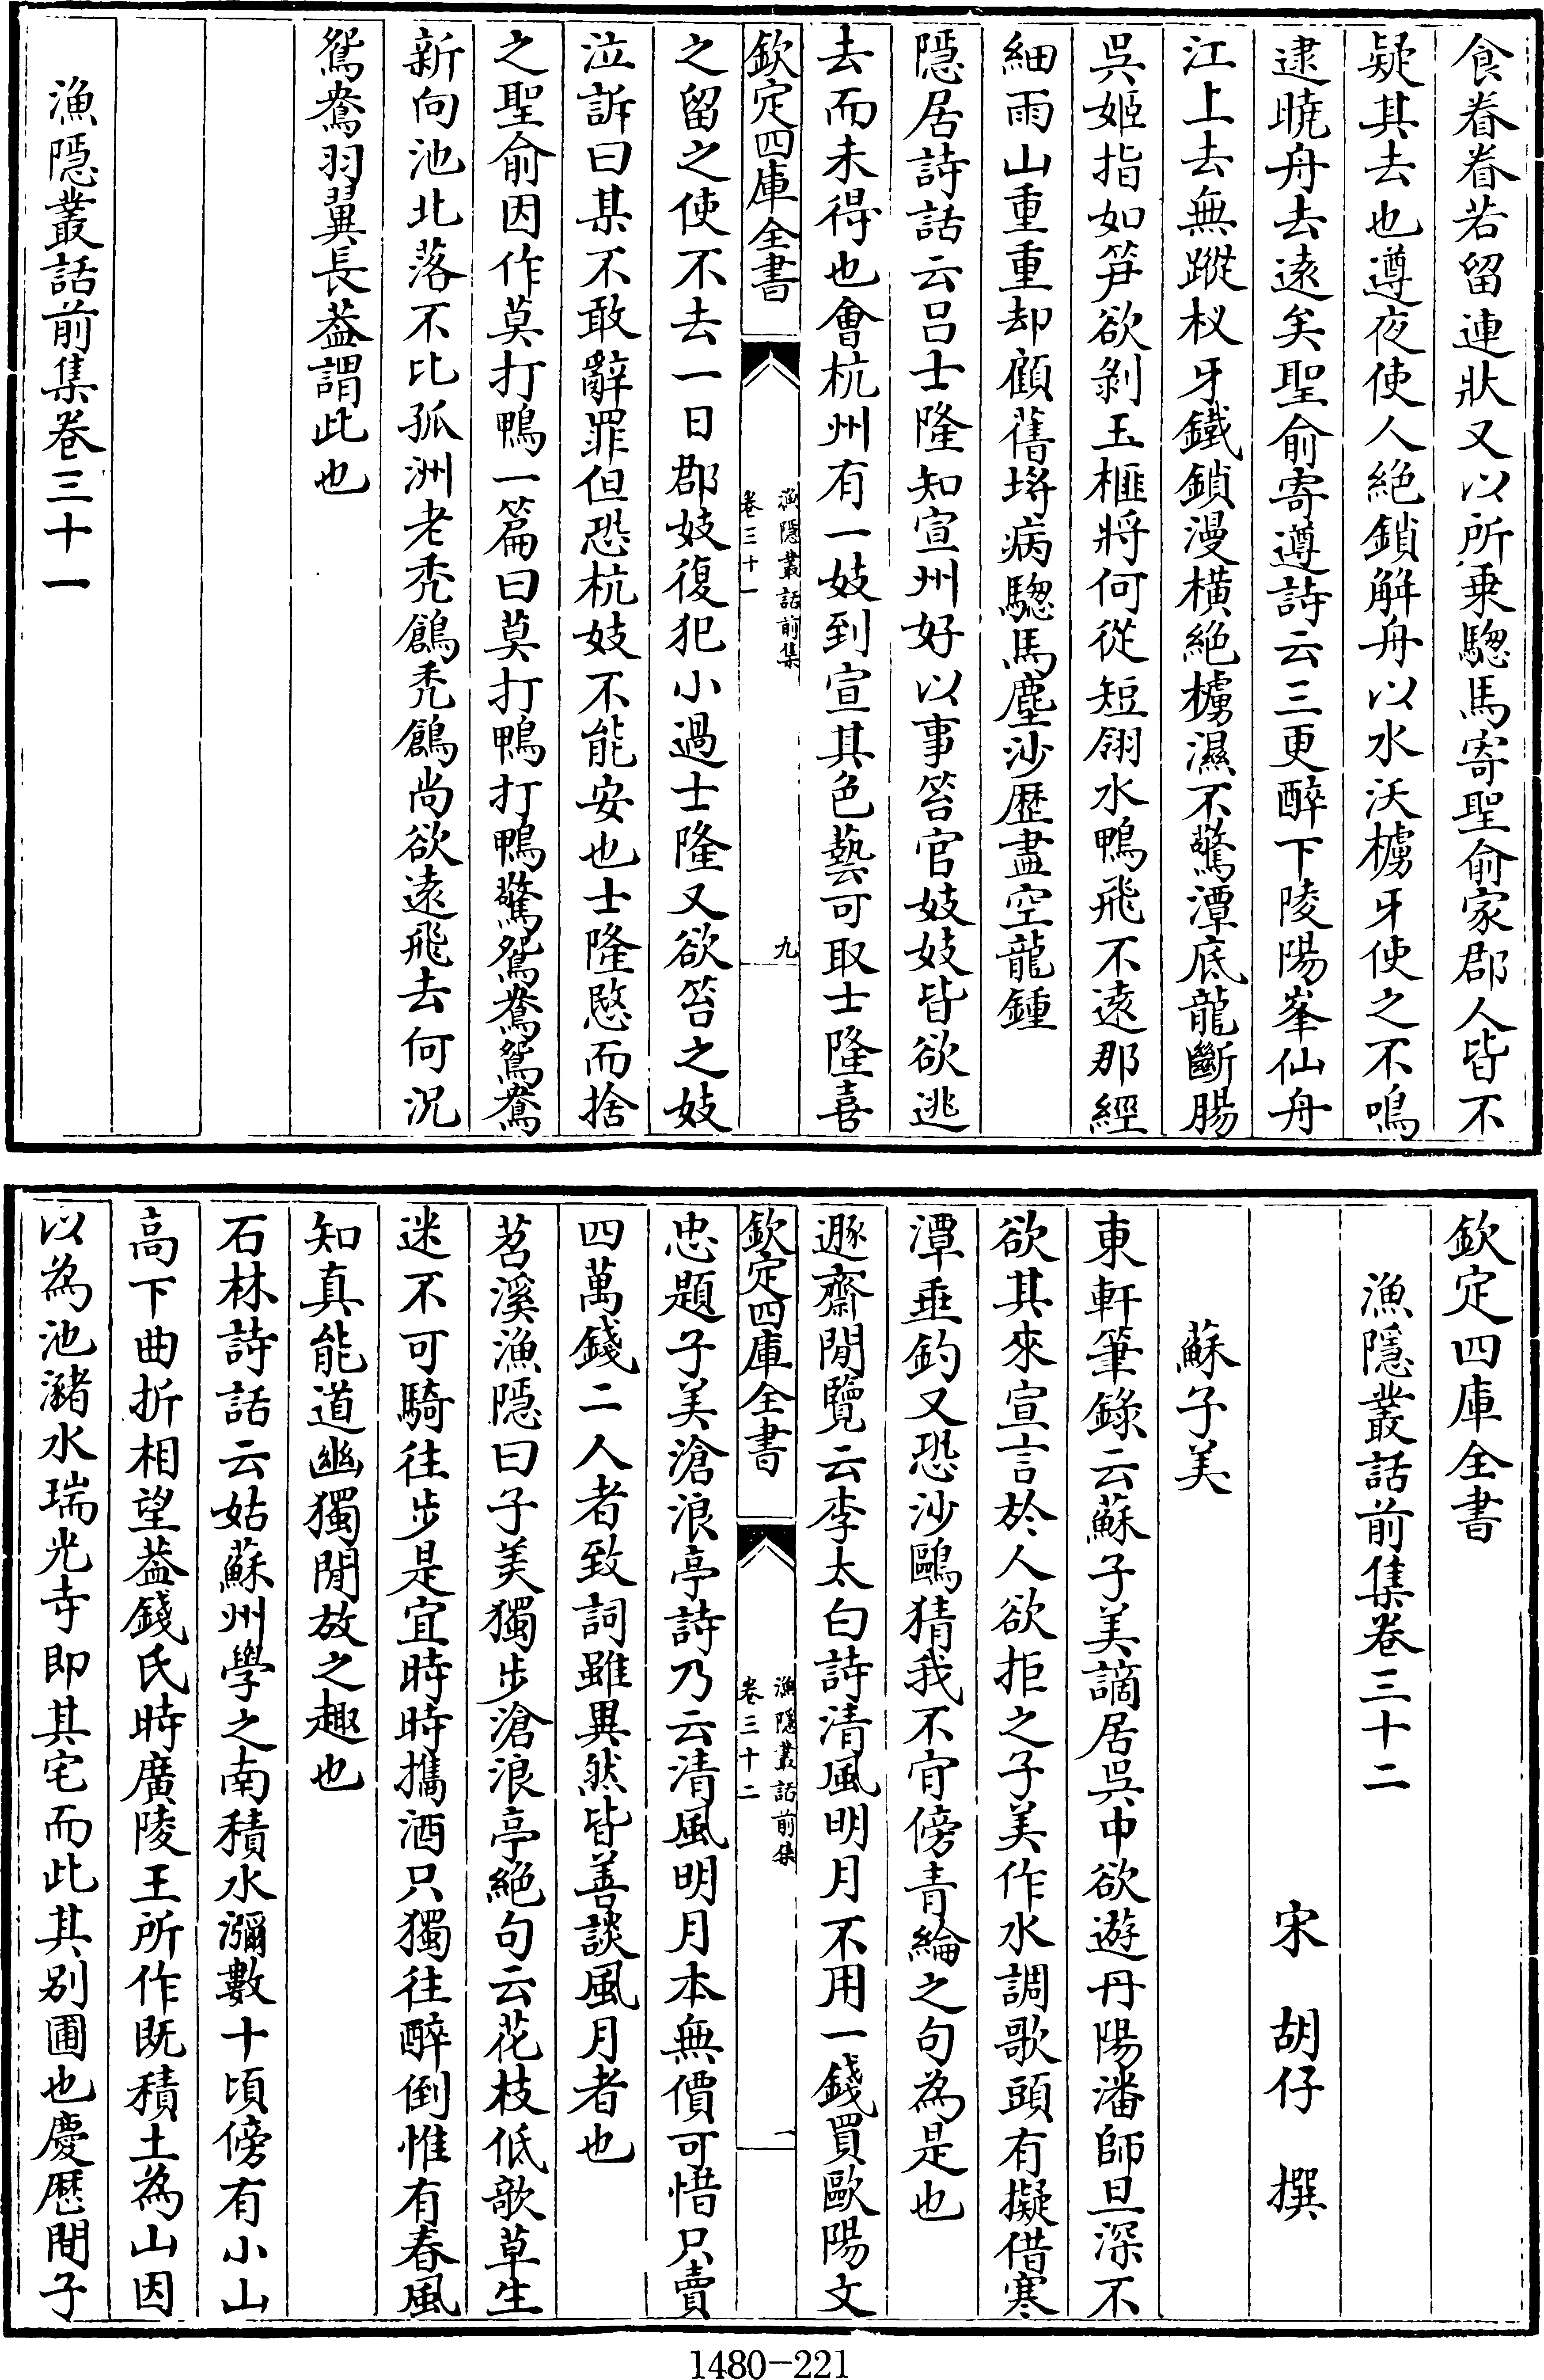 食眷眷若留連狀又以所乗騘馬寄聖俞家郡人皆不
疑其去也遵夜使人絶鎖解舟以水沃櫓牙使之不鳴
逮曉舟去逺矣聖俞寄遵詩云三更醉下陵陽峯仙舟
江上去無蹤杈牙鐵鎖漫橫絶櫓濕不驚潭底龍斷腸
吳姬指如笋欲剝玉榧將何從短翎水鴨飛不逺那經
細雨山重重却顧舊埓病騘馬塵沙歴盡空龍鍾
隱居詩話云吕士隆知宣州好以事笞官妓妓皆欲逃
去而未得也會杭州有一妓到宣其色藝可取士隆喜
欽定四庫全書
漁隱叢話前集
卷三十一
九
之留之使不去一日郡妓復犯小過士隆又欲笞之妓
泣訴曰某不敢辭罪但恐杭妓不能安也士隆愍而捨
之聖俞因作莫打鴨一篇曰莫打鴨打鴨驚鴛鴦鴛鴦
新向池北落不比孤洲老秃鶬秃鶬尚欲逺飛去何况
鴛鴦羽翼長葢謂此也
漁隱叢話前集卷三十一
欽定四庫全書
漁隱叢話前集卷三十二
宋 胡仔 撰
蘇子美
東軒筆錄云蘇子美謫居吳中欲遊丹陽潘師旦深不
欲其來宣言於人欲拒之子美作水調歌頭有擬借寒
潭垂釣又恐沙鷗猜我不肯傍青綸之句為是也
遯齋閒覽云李太白詩清風明月不用一錢買歐陽文
欽定四庫全書
漁隱叢話前集
卷三十二
一
忠題子美滄浪亭詩乃云清風明月本無價可惜只賣
四萬錢二人者致詞雖異然皆善談風月者也
苕溪漁隱曰子美獨步滄浪亭絶句云花枝低歌草生
迷不可騎往步是宜時時攜酒只獨往醉倒惟有春風
知真能道幽獨閒放之趣也
石林詩話云姑蘇州學之南積水瀰數十頃傍有小山
高下曲折相望葢錢氏時廣陵王所作既積土為山因
以為池瀦水瑞光寺即其宅而此其别圃也慶厯間子
1480-221